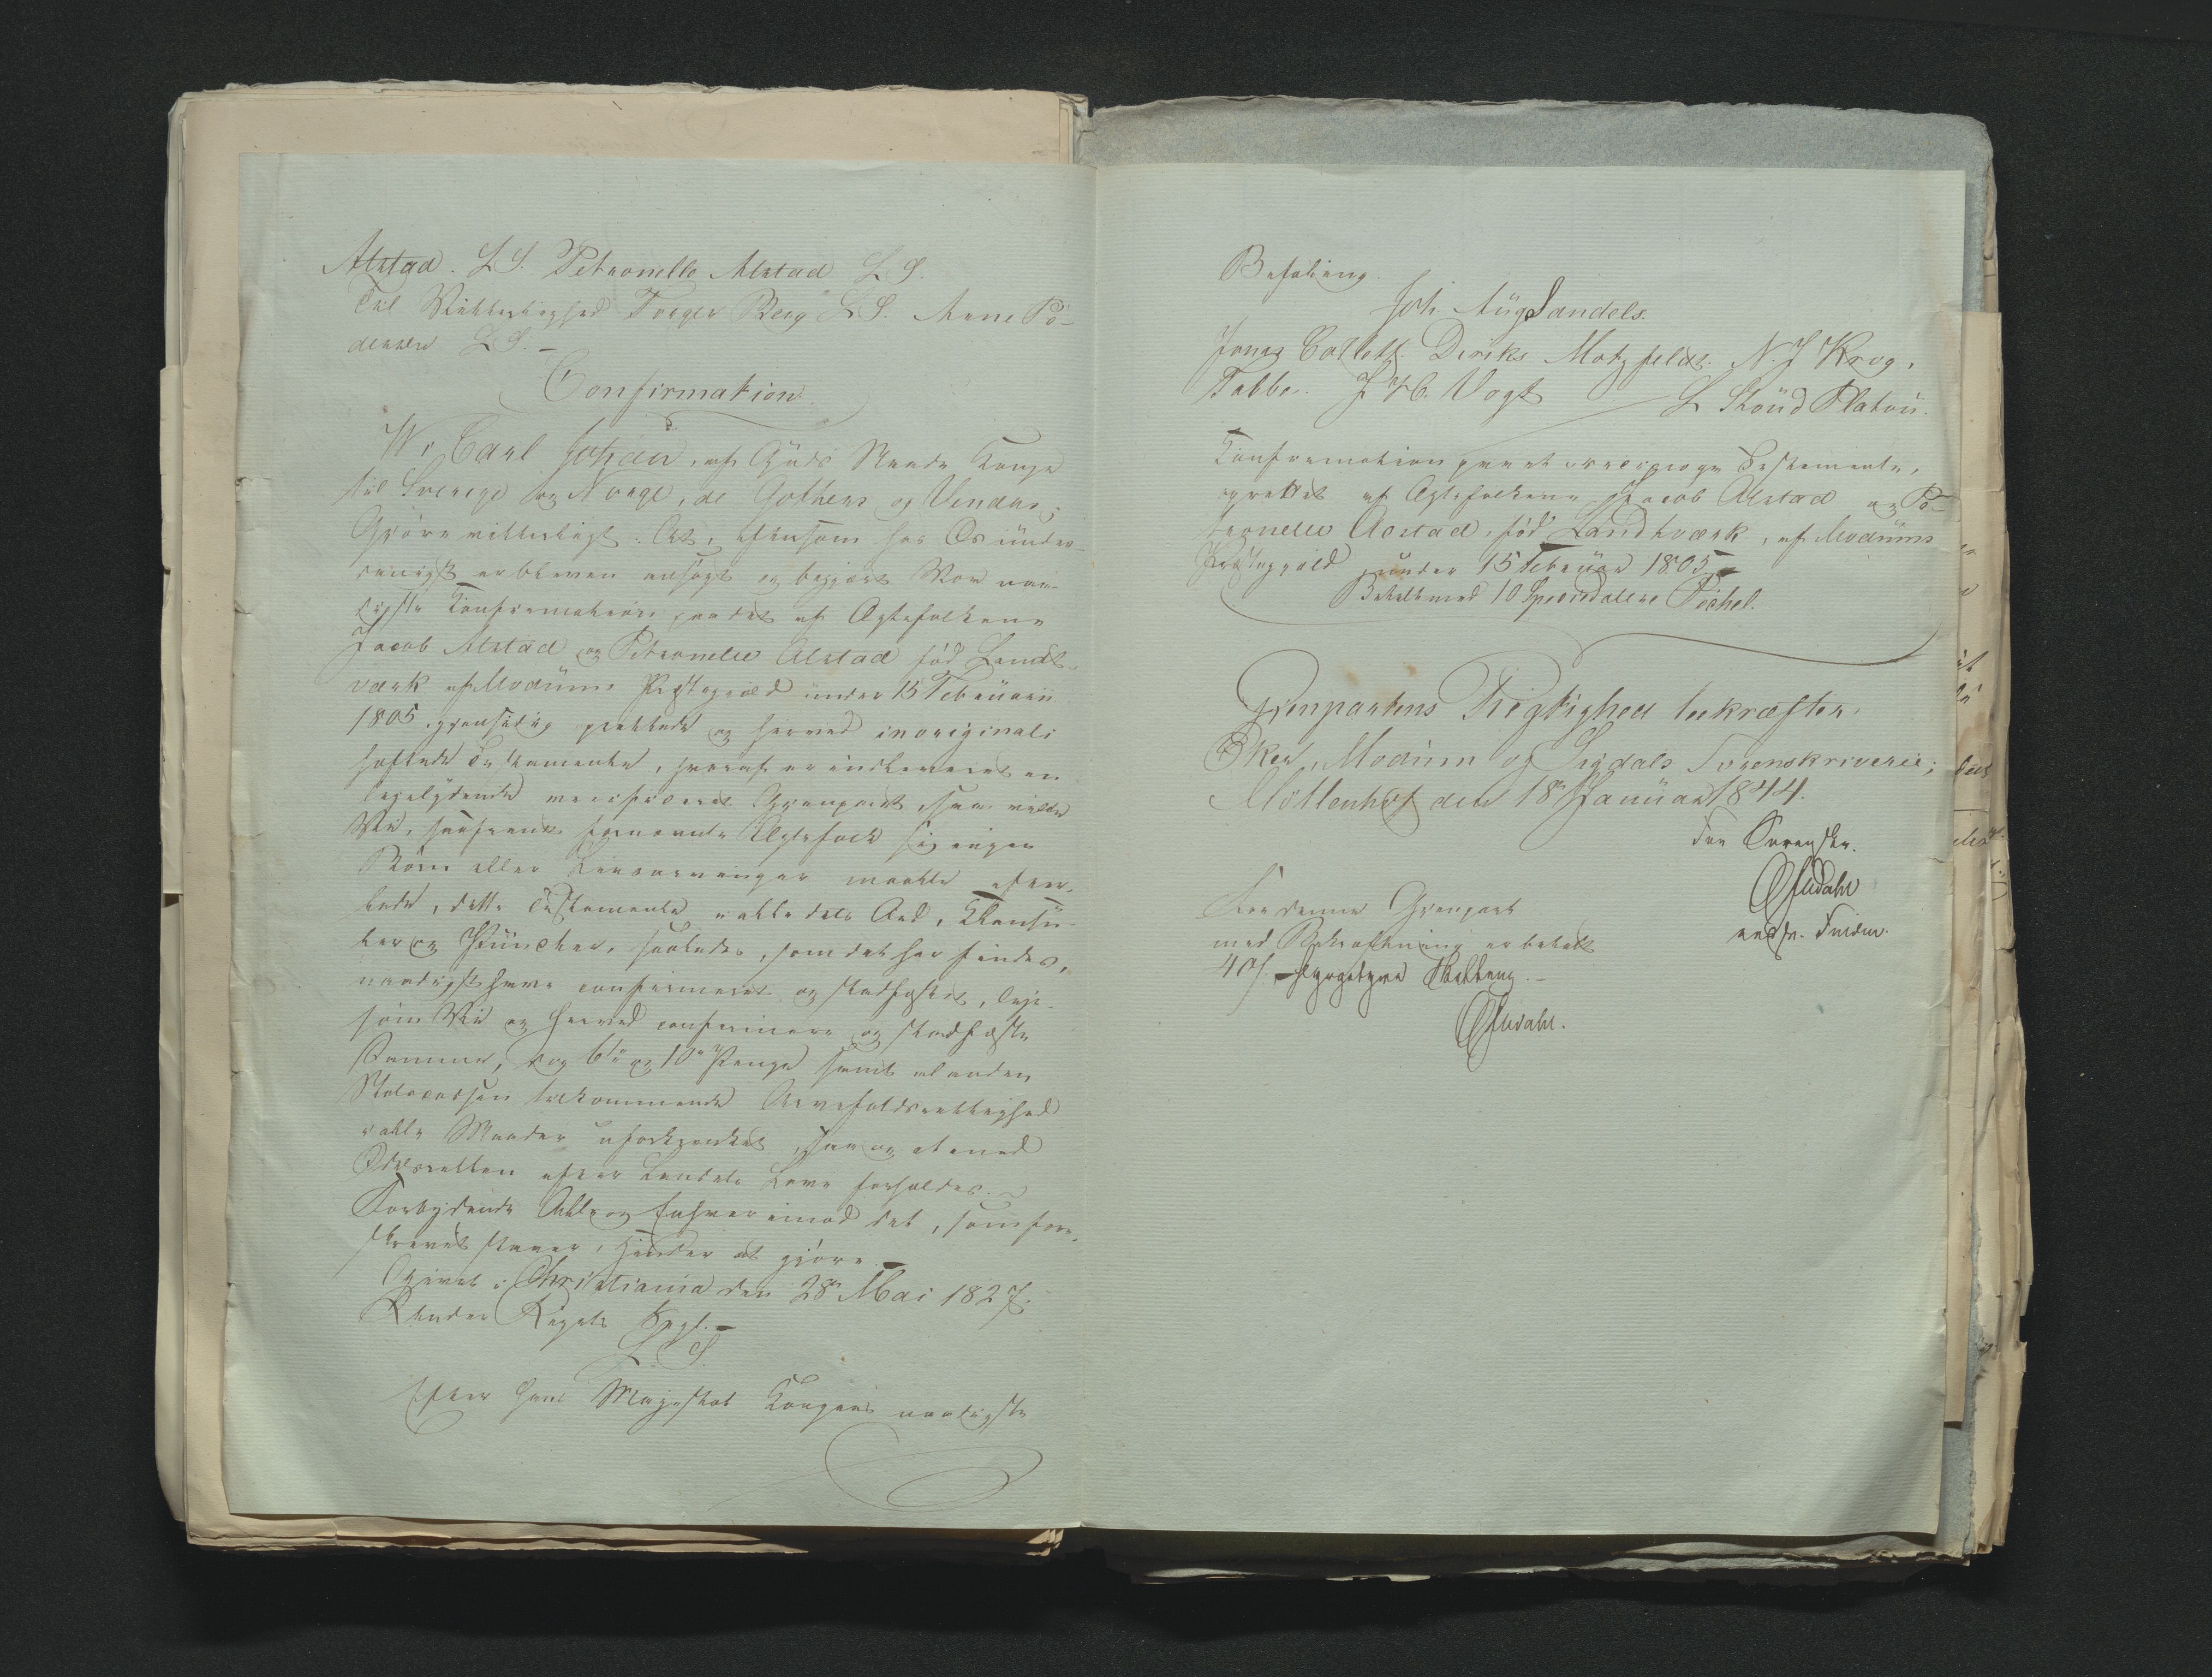 Alstad. L. S. Petronelle Alstad L. S.
Til Vitterlighed Torger Berg L. S. Anne Pe-
dersen L. S. –
Confirmation.
Vi Carl Johan, af Guds Naade Konge
til Sverige og Norge, de Gothers og Venders;
Gjøre vitterligt: At, eftersom hos Os under-
danigst er bleven ansøgt og begjært Vor naa-
digste Confirmation paa det af Ægtefolkene
Jacob Alstad og Petronelle Alstad født Lands-
værk af Modums Præstegield under 15 Februarii
1805 gjensidig oprettede og herved in originali
heftede Testamente, hvoraf er indleveret en
ligelydende verificeret Gjenpart, saa ville
Vi, saafremt fornævnte Ægtefolk sig ingen
Børn eller Livsarvinger maatte efter-
lade, dette Testamente i alle dets Ord, Klausu-
ler og Puncter, saaledes, som det her findes,
naadigst have confirmeret og stadfæstet, lige-
som Vi og herved confirmere og stadfæste
Samme, dog 6te og 10de Penge samt al anden
Statscassen tilkommende Arvefaldsrettighed
i alle Maader uforkrænket, saa og at med
Odelsretten efter Landets Love forholdes.
Forbydende Alle og Enhver imod det, som fore-
skrevet staaer, Hinder at gjøre. –
Givet i Christiania den 28de Mai 1827.
Under Rigets Segl. –
L. S.
Efter Hans Majestæt Kongens naadigste
Befaling.
Joh. Aug. Sandels.
Jonas Collett. Diriks Motzfeldt. N. J Krog.
Fabbe. J. H. Vogt
L Stoud Platou.
Confirmation paa et reciproqve Testamente,
oprettet af Ægtefolkene Jacob Alstad og Pe-
tronelle Alstad, født Landsværk, af Modums
Præstegield under 15 Februar 1805 –
Betalt med 10 Speciedalere Pöchel.
Gjenpartens Rigtighed bekræfter.
Eker, Modum og Sigdals Sorenskriverie;
Møllenhof den 18de Januar 1844.
For Sorenskr.
eedsv. Fuldm.
For denne Gjenpart
med Bekræftning er betalt
40 s. – fyrgetyve Skilling. –